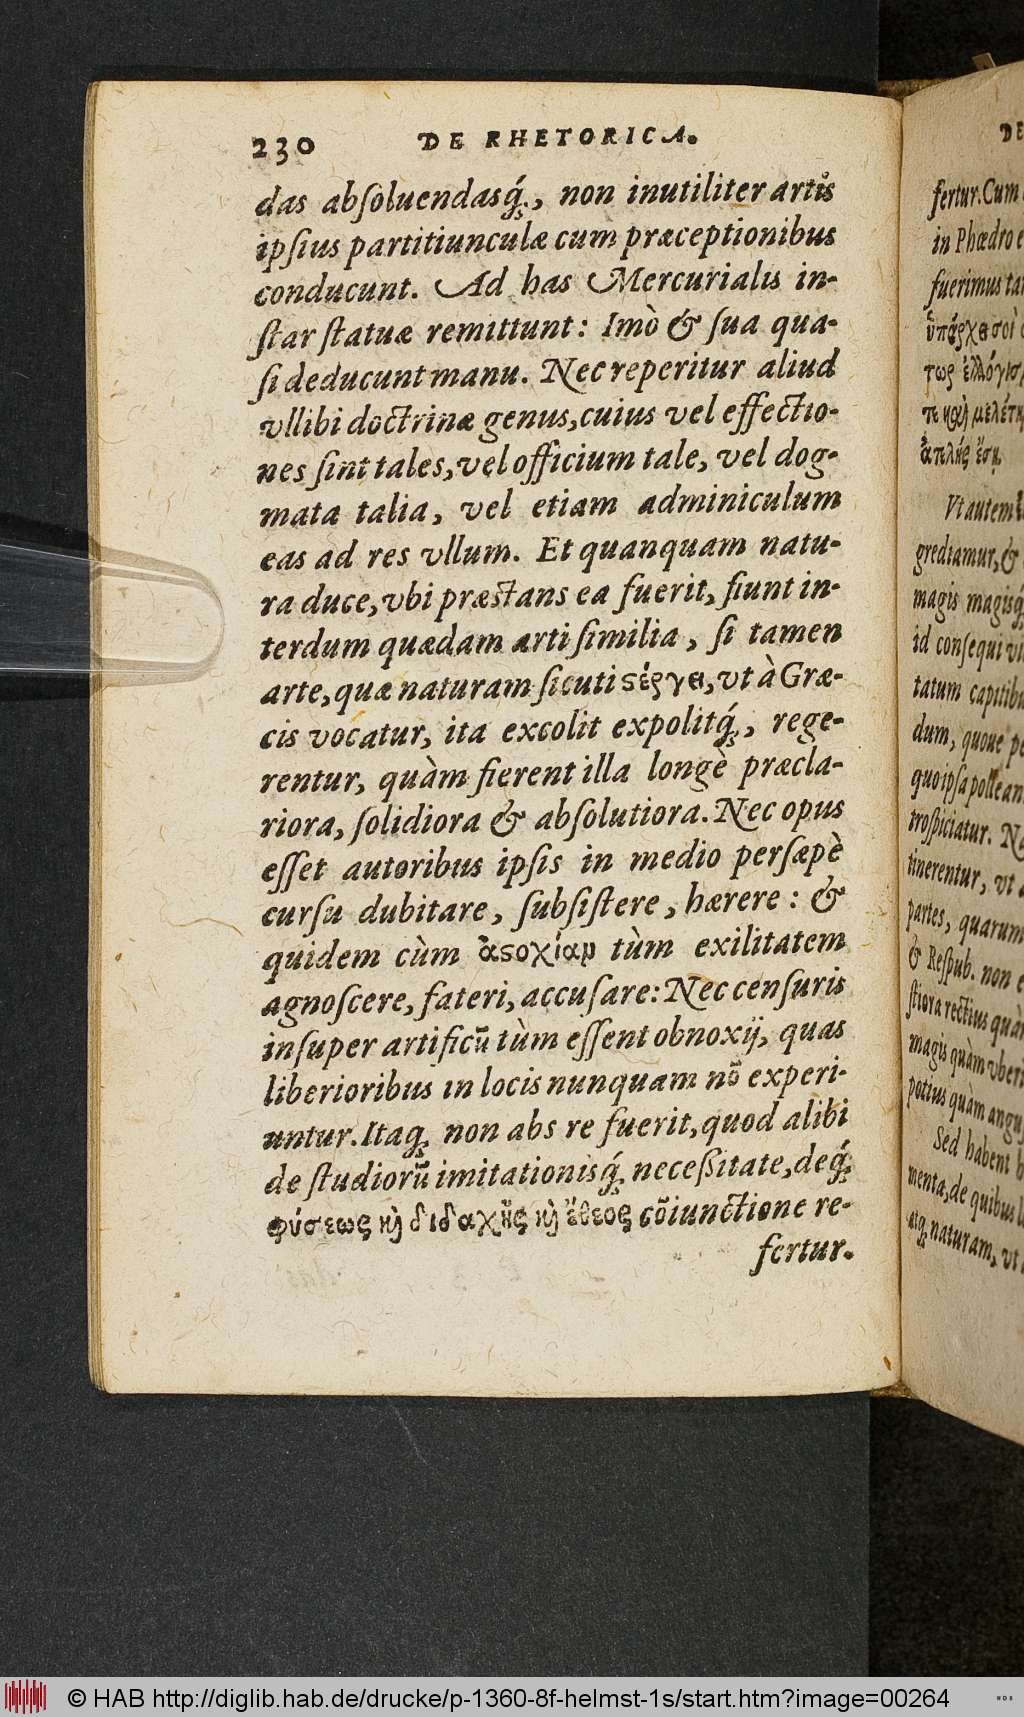 230 DE RHETORICA.
das abſoluendasq́;, non inutiliter artis
ipſius partitiunculæ cum præceptionibus
conducunt. Ad has Mercurialis in-
ſtar ſtatuæ remittunt: Imò & ſua qua-
ſi deducunt manu. Nec reperitur aliud
vllibi doctrinæ genus, cuius vel effectio-
nes ſint tales, vel officium tale, vel dog-
mata talia, vel etiam adminiculum
eas ad res vllum. Et quanquam natu-
ra duce, vbi præstans ea fuerit, fiunt in-
terdum quædam arti ſimilia, ſi tamen
arte, quæ naturam ſicuti ϛέργει, vt à Græ-
cis vocatur, ita excolit expolitq́;, rege-
rentur, quàm fierent illa longè præcla-
riora, ſolidiora & abſolutiora. Nec opus
eſſet autoribus ipſis in medio perſæpè
curſu dubitare, ſubſiſtere, hærere: &
quidem cùm ἀϛοχίαν tùm exilitatem
agnoſcere, fateri, accuſare: Nec cenſuris
inſuper artificū tùm eſſent obnoxij, quas
liberioribus in locis nunquam nō experi-
untur. Itaq; non abs re fuerit, quod alibi
de ſtudiorū imitationisq́; neceßitate, deq́;
φύσεως ϗ̀ διδαχῆς ϗ̀ ἔθεος cōiunctione re-
fertur.
DE
fertur. Cum
in Phædro
fuerimus
ὑπάρχει σοὶ
τωρ ἐλλόγι
τε καὶ μελέτη
ἀτελὴς ἔσῃ.
Vt autem
grediamur, &
magis magisq́;
id conſequi
tatum capiti
dum, quoue
quo ipſa
troſpiciatur.
tinerentur, vt
partes, quarum
& Reſpub. non
ſtiora rectius
magis quàm
potius quam
Sed habent
menta, de quibus
atq; naturam, vt
© HAB http://diglib.hab.de/drucke/p-1360-8f-helmst-1s/start.htm?image=00264